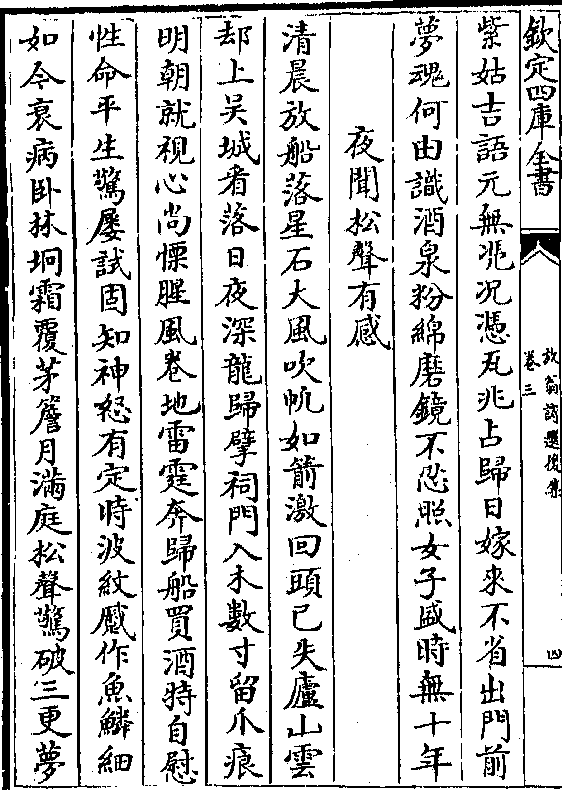 欽定四庫全書
放翁詩選後集
卷三
四
紫姑吉語元無憑況憑瓦兆占歸日嫁來不省出門前
夢魂何由識酒泉粉綿磨鏡不忍照女子盛時無十年
夜聞松聲有感
清晨放船落星石大風吹帆如箭激回頭已失廬山雲
却上吴城看落日夜深龍歸擘祠門入木數寸留爪痕
明朝就視心尚慄腥風卷地雷霆奔歸船買酒持自慰
性命平生驚屢試固知神怒有定時波紋蹙作魚鱗細
如今衰病卧林坰霜覆茅簷月滿庭松聲驚破三更夢